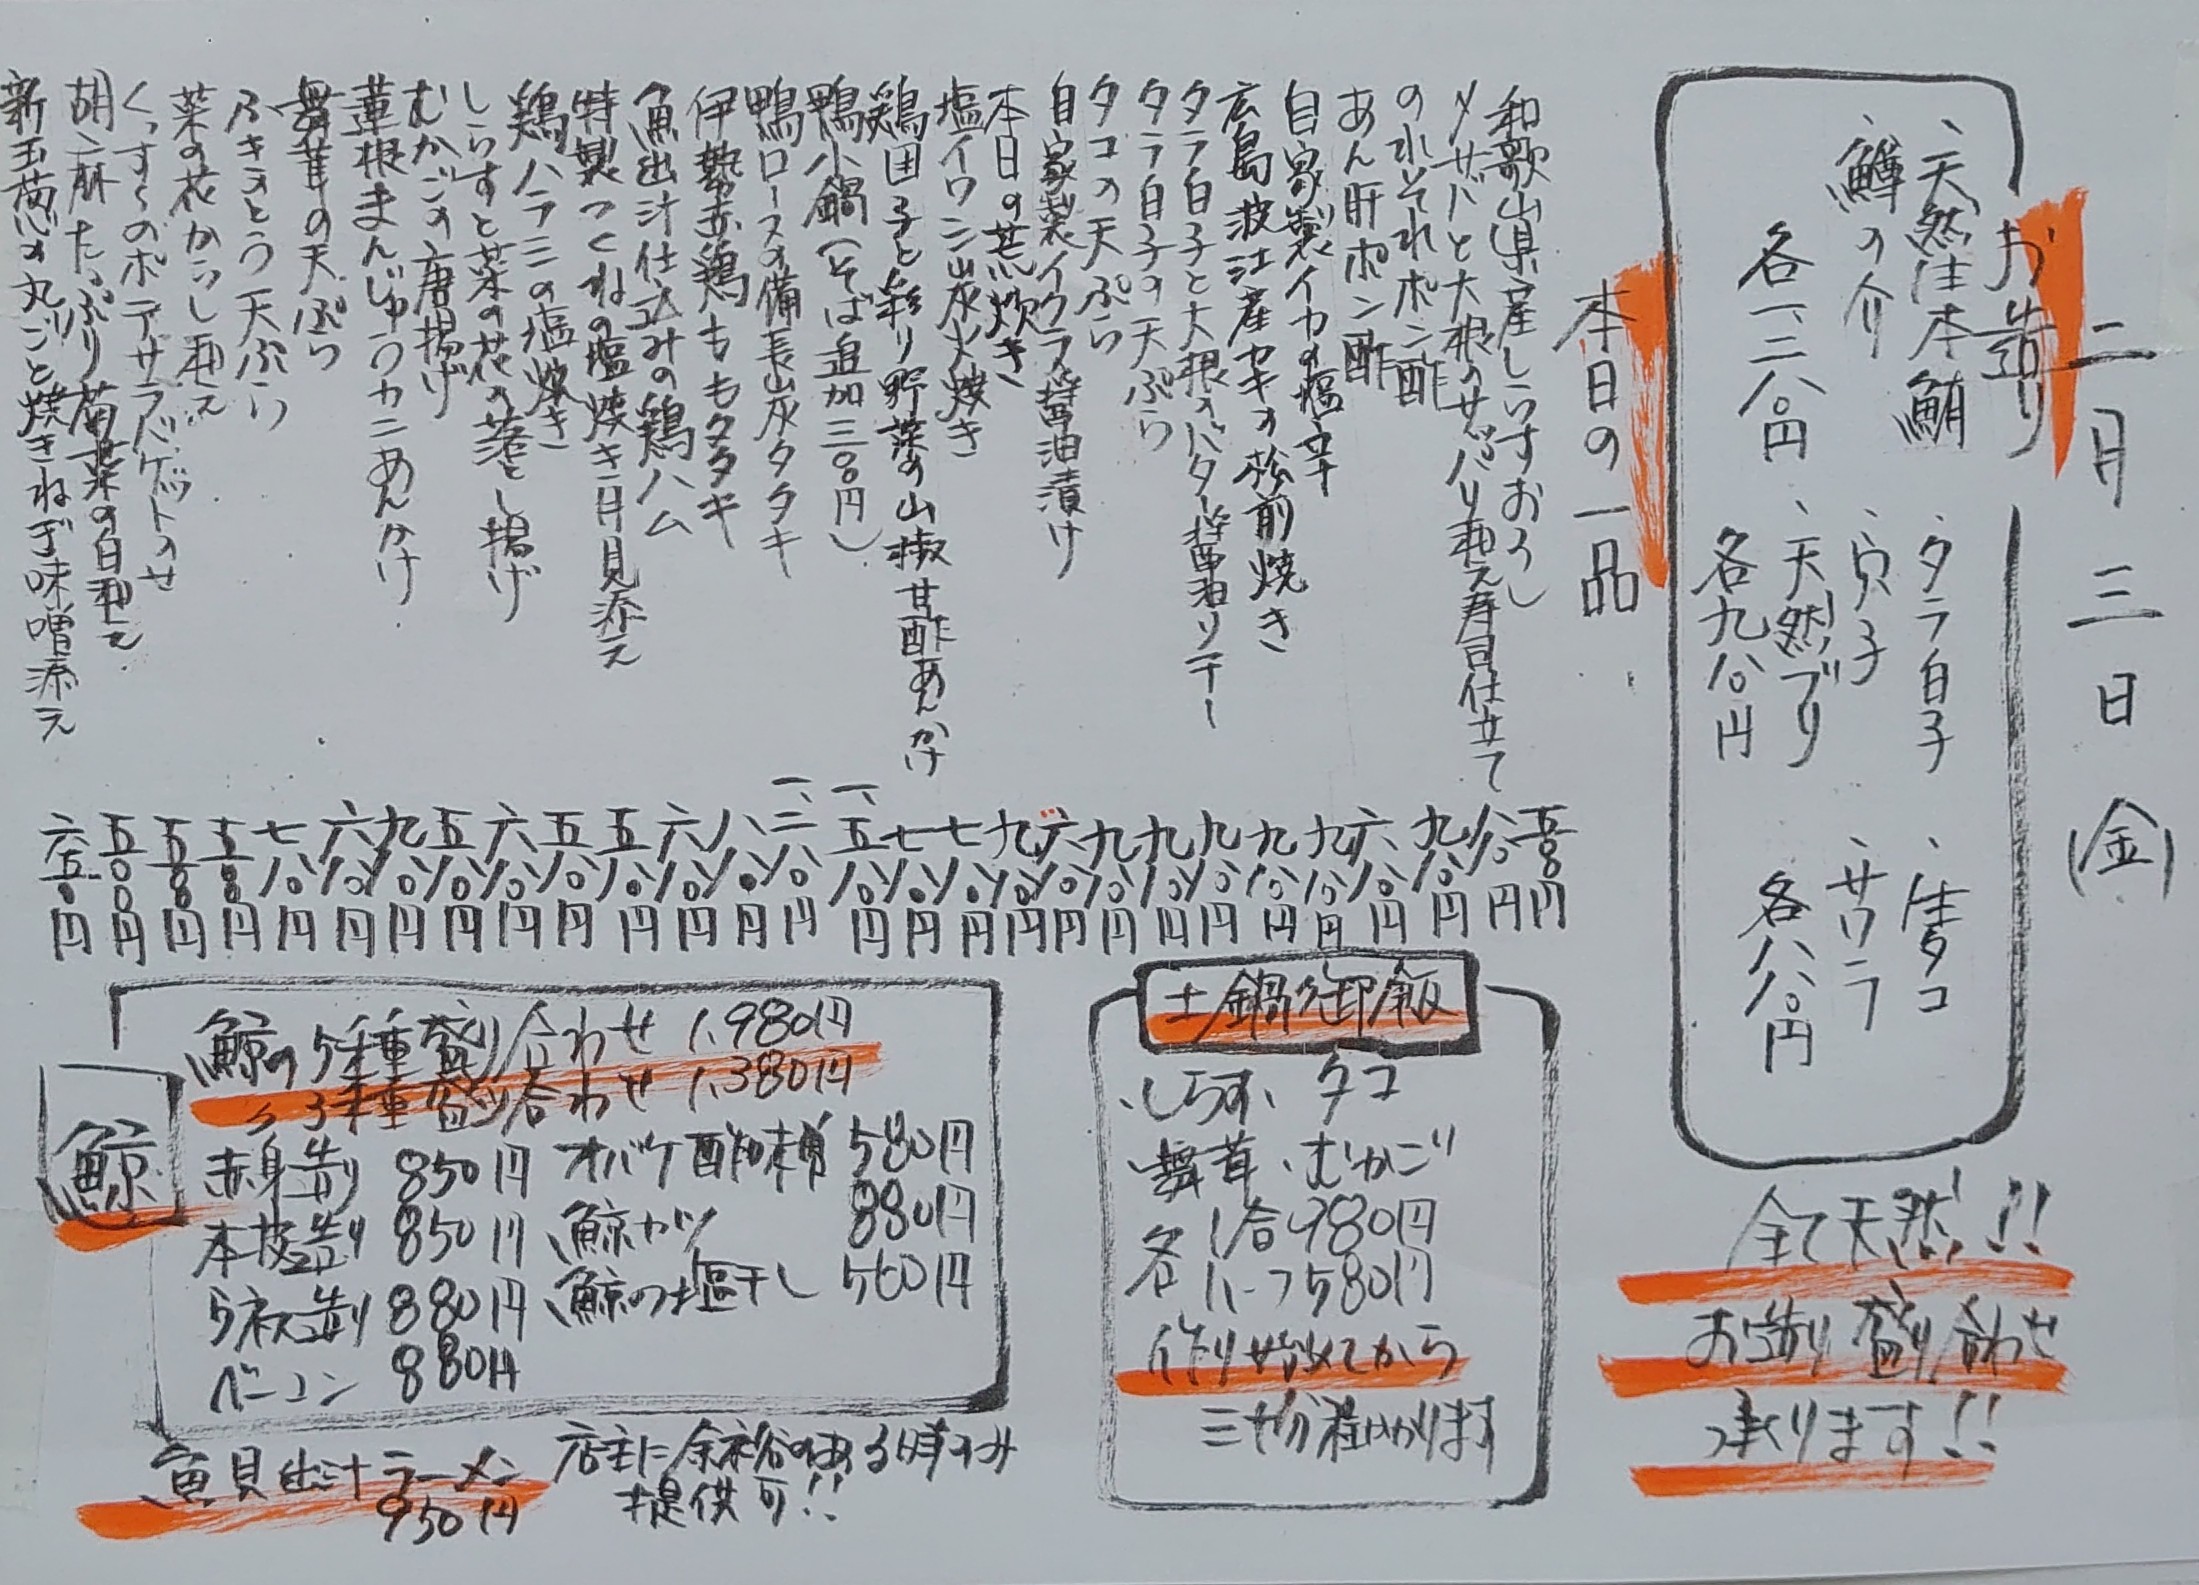 二月三日(金)
お造り
、天然生本鮪
、鱒の介
各一、二八〇円
、タラ白子
、真子
、天然ブリ
各九八〇円
、生タコ
、サワラ
各八八〇円
全て天然!!
お造り盛り合わせ
承ります!!
本日の一品
和歌山県産しらすおろし 五〇〇円
〆サバと大根のサッパリ和え寿司仕立て 八八〇円
のれそれポン酢 九八〇円
あん肝ポン酢 六八〇円
自家製イカの塩辛
広島波江産カキの松前焼き 九八〇円
タラ白子と大根のバター醤油ソテー 九八〇円
タラ白子の天ぷら 九八〇円
タコの天ぷら 九八〇円
自家製イクラ醤油漬け 六八〇円
本日の煮炊き 九八〇円
塩イワシ炭火焼き 七八〇円
鶏団子と彩り野菜の山椒甘酢あんかけ 七八〇円
鴨小鍋(そば追加三〇〇円) 一、五八〇円
鴨ロースの備長炭タタキ 一、三八〇円
伊勢赤鶏ももタタキ 八八〇円
魚出汁仕込みの鶏ハム 六八〇円
特製つくねの塩焼き月見添え 五八〇円
鶏ハラミの塩焼き 五八〇円
しらすと菜の花の落とし揚げ 六八〇円
むかごの唐揚げ 五八〇円
蓮根まんじゅうカニあんかけ 九八〇円
舞茸の天ぷら 六八〇円
ふきのとう天ぷら 七八〇円
菜の花からし和え 五〇〇円
くっすくのポテサラバゲットのせ 五〇〇円
胡麻たっぷり菊菜の白和え 五〇〇円
新玉葱の丸ごと焼きねぎ味噌添え 六五〇円
土鍋御飯
、しらす、タコ
、舞茸、むかご
各1合980円
各ハーフ580円
作り始めてから
三十分程かかります
鯨
鯨の5種盛り合わせ 1,980円
〃3種盛り合わせ 1,380円
赤身造り 850円 オバケ酢味噌 580円
本皮造り 850円 鯨カツ 880円
うねす造り 880円 鯨の塩干し 560円
ベーコン 880円
魚貝出汁ラーメン
950円
店主に余裕のある時のみ
提供可!!